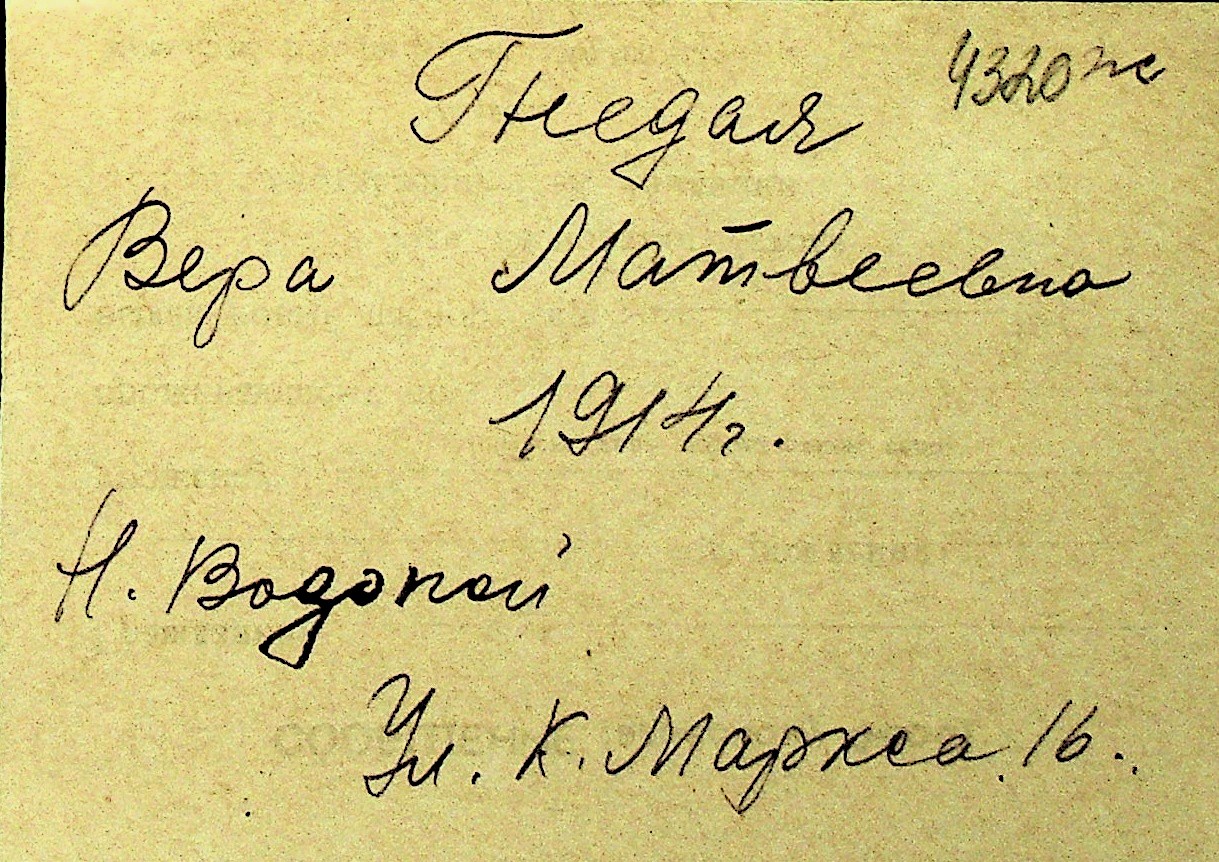 Гнедая 4320
Вера Матвеевна
1914г.
Н. Водопой
Ул. К. Маркса 16.